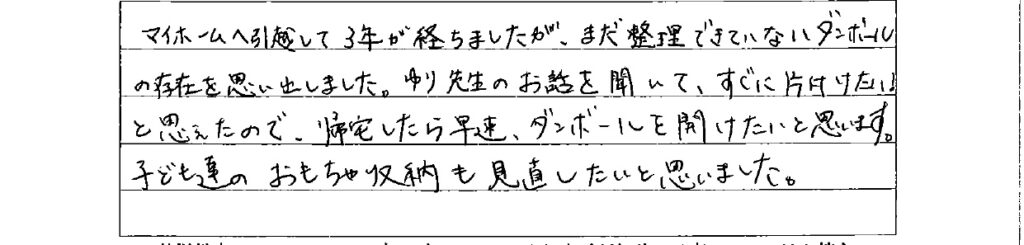 マイホームへ引越して3年が経ちましたが、まだ整理できていないダンボール
の存在を思い出しました。ゆり先生のお話を聞いて、すぐに片付けたい
と思えたので、帰宅したら早速、ダンボールを開けたいと思います。
子ども達のおもちゃ収納も見直したいと思いました。